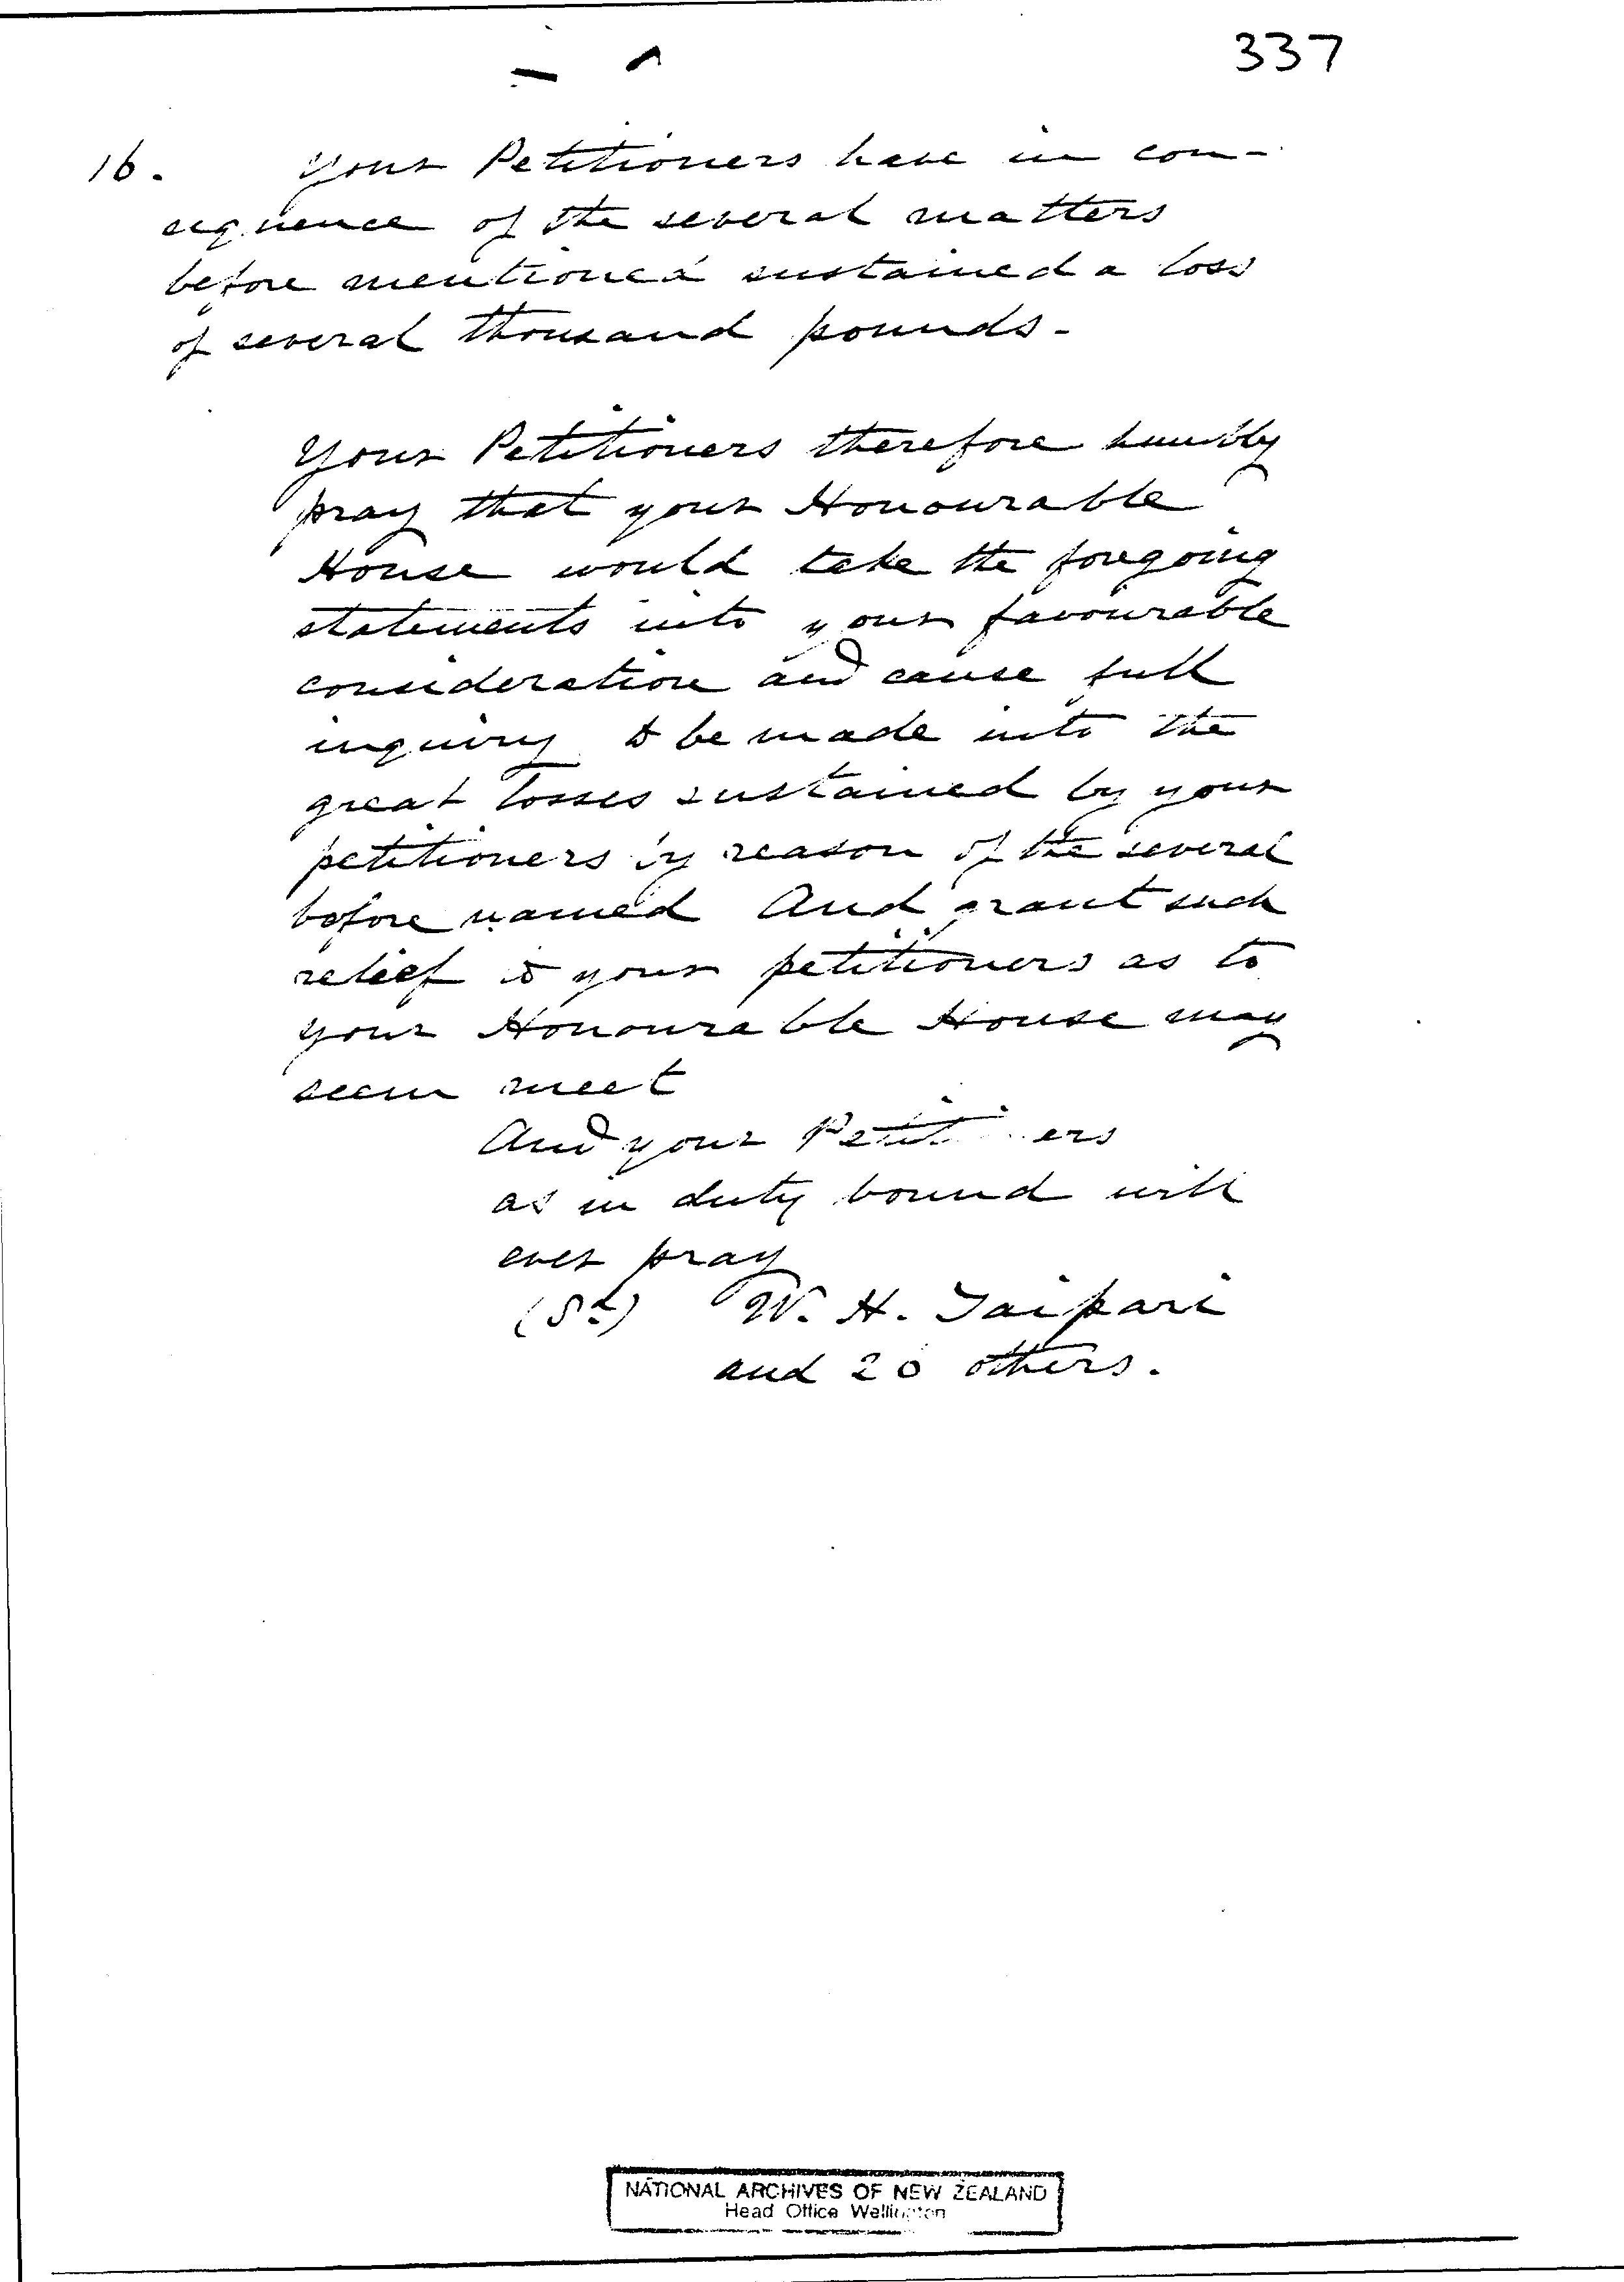 337
16. Your Petitioners have in con-
sequence of the several matters
before mentioned sustained a loss
of several thousand pounds-
Your Petitioners therefore humbly
pray that your Honourable
House would take the foregoing
statements into your favourable
consideration and cause full
inquiry to be made into the
great losses sustained by your
petitioners by reason of the several
before named And grant such
relief to your petitioners as to
your Honourable House may
seem meet
And your Petitioners
as in duty bound will
ever pray
(Sd) W. H. Taipari
and 20 others.
NATIONAL ARCHIVES OF NEW ZEALAND
Head Office Wellington